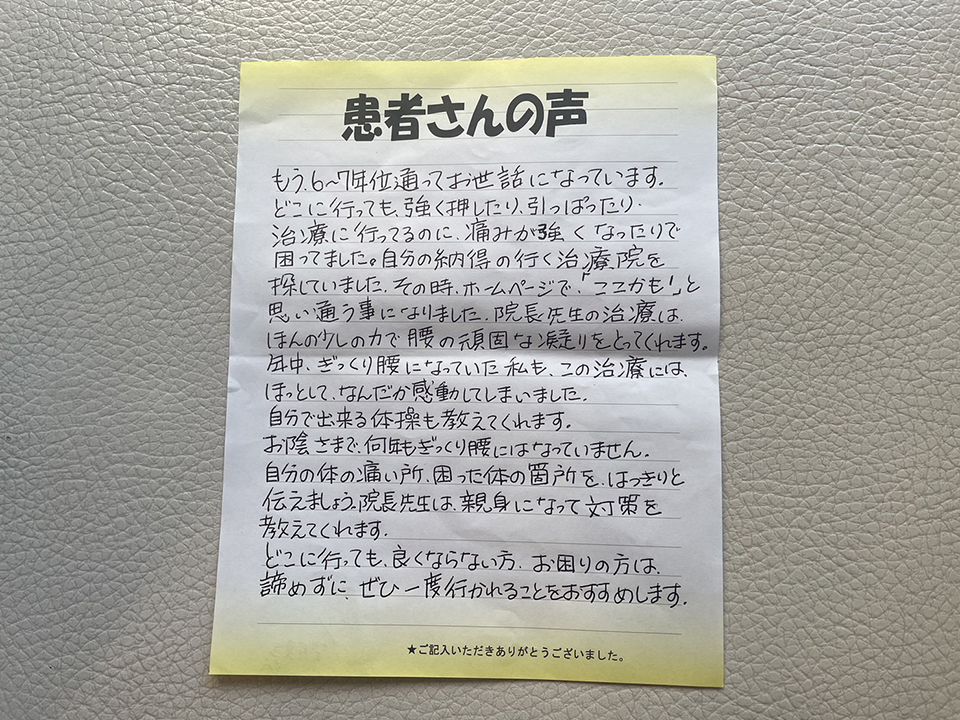 患者さんの声
もう、6〜7年位通ってお世話になっています。
どこに行っても、強く押したり、引っぱったり.
治療に行ってるのに、痛みが強くなったりで
困ってました。自分の納得の行く治療院を
探していました。その時、ホームページで、「ここかも!」と
思い通う事になりました。院長先生の治療は、
ほんの少しの力で腰の頑固な凝りをとってくれます。
年中、ぎっくり腰になっていた私も、この治療には、
ほっとして、なんだか感動してしまいました。
自分で出来る体操も教えてくれます。
お陰さまで、何年もぎっくり腰にはなっていません。
自分の体の痛い所、困った体の箇所を、はっきりと
伝えましょう。院長先生は、親身になって対策を
教えてくれます。
どこに行っても、良くならない方、お困りの方は、
諦めずに、ぜひ一度行かれることをおすすめします。
★ご記入いただきありがとうございました。